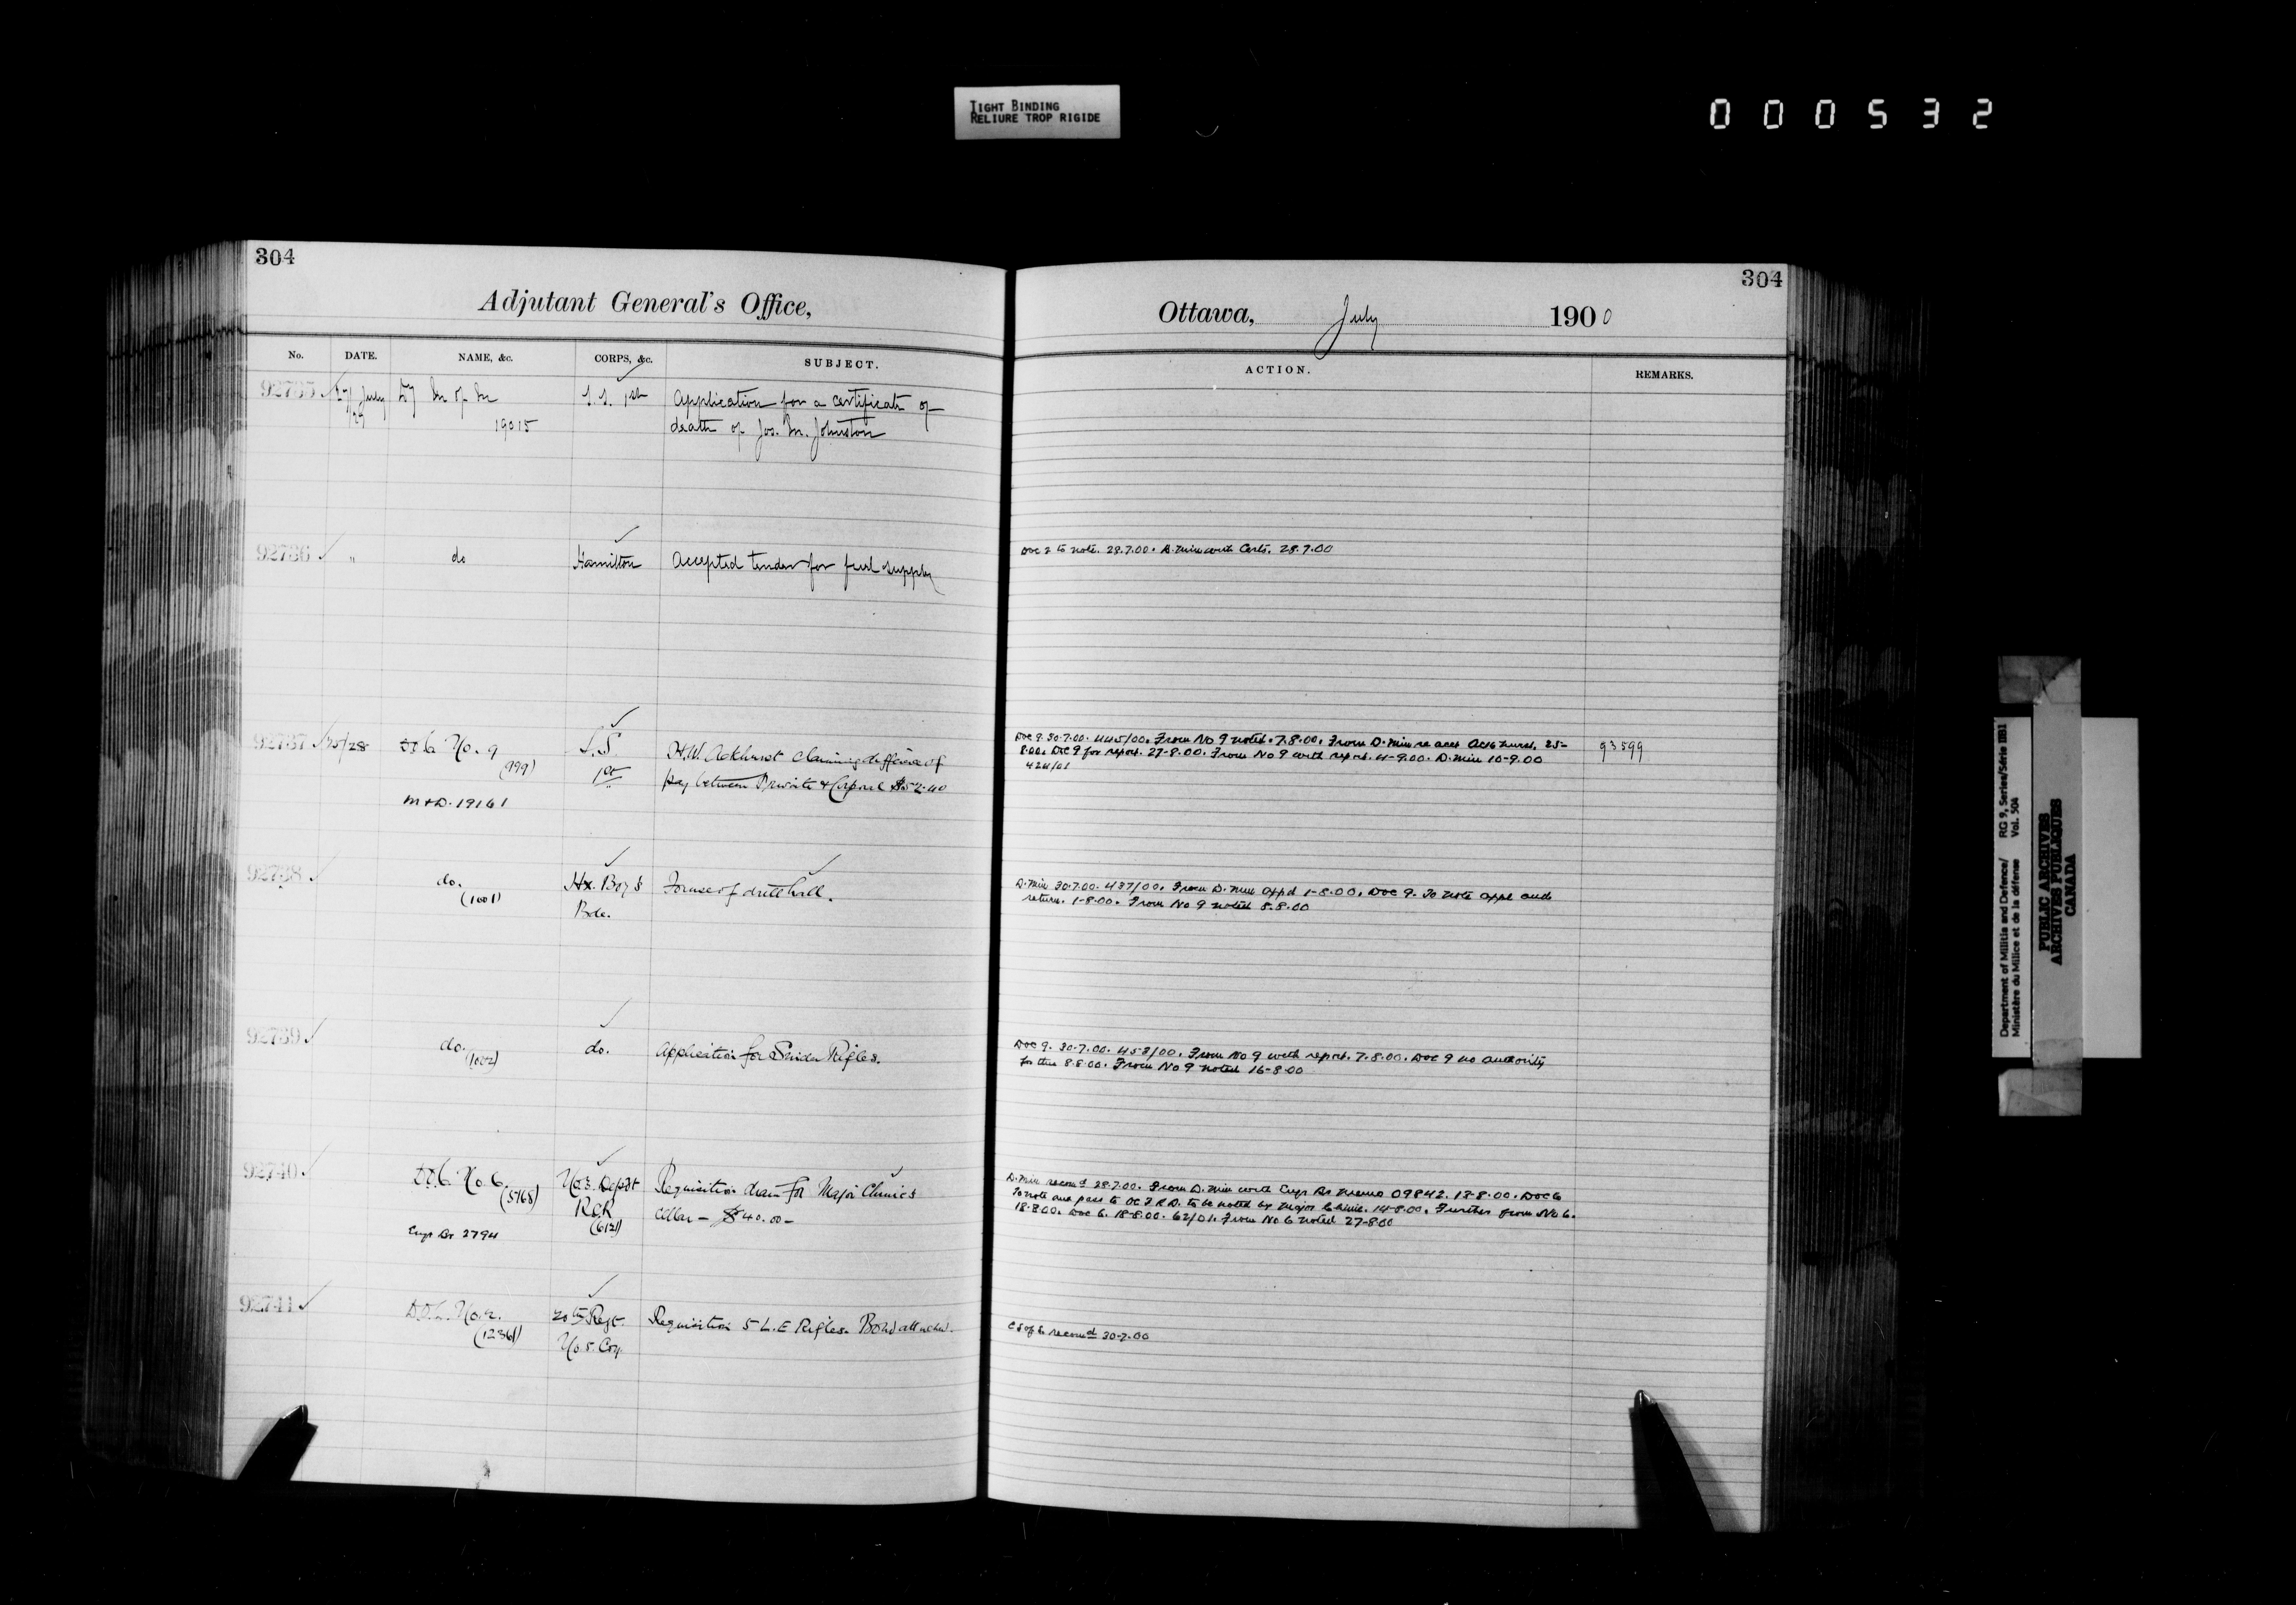 TIGHT BINDING
RELIURE TROP RIGIDE
000532
304
Adjutant General's Office,
No. DATE. NAME, &c. CORPS, &c. SUBJECT.
92735 27 July Dy M of M S.S. 1st Application for a certificate of
/29 19015 death of Jos. M. Johnston
92736 " do Hamilton Accepted tender for fuel supply
92737 28 D.O.C. No. 9 S.S. H.W. Ackhurst claiming difference of
(999) 1st pay between Private & Corporal $52.40
M & D. 19161
92738 do. Hx. Boy's For use of drill hall.
(1001) Bde.
92739 do. do. Application for Snider Rifles.
(1002)
92740 D.O.C. No. 6. No. 3. Depot Requisition drain for Major Chinic's
(5768) R.C.R. cellar — $40.00 —
(612)
Engr Br 2794
92741 D.O.C. No. 2. 20th Regt. Requisition 5 L.E Rifles. Bond attached.
(12361) No. 5. Coy.
304
Ottawa, July 1900
ACTION. REMARKS.
DOC 2 to note. 28.7.00. D. Min with Certs. 28.7.00
DOC 9. 30.7.00. 445/00. From No 9 noted. 7.8.00. From D. Min re acct Ackhurst. 25- 93599
8.00. DOC 9 for report. 27-8.00. From No 9 with report. 4-9.00. D. Min 10-9.00
424/01
D. Min 30.7.00. 437/00. From D. Min appd 1-8.00. DOC 9. To note appl and
return. 1-8.00. From No 9 noted 8.8.00
DOC 9. 30-7.00. 453/00. From No 9 with report. 7.8.00. DOC 9 no authority
for this 8.8.00. From No 9 noted 16-8.00
D. Min recomd 28.7.00. From D. Min with Engr Br memo 09842. 13-8.00. DOC 6
To note and pass to OC 3 R.D. to be noted by Major Chinic. 14-8.00. Further from No 6.
18-8.00. DOC 6. 18-8.00. 62/01. From No 6 noted 27-8.00
C S of S recomd 30-7.00
Department of Militia and Defence/ RG 9, Series/Série IIB1
Ministère du Milice et de la défense Vol. 504
PUBLIC ARCHIVES
ARCHIVES PUBLIQUES
CANADA